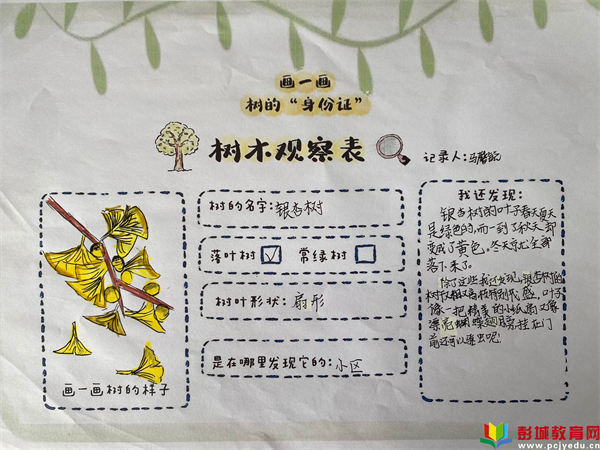 画一画
树的“身份证”
树木观察表
记录人:马
树的名字:银杏树
落叶树 ☑ 常绿树 ☐
树叶形状:扇形
是在哪里发现它的:小区
画一画树的样子
我还发现:
银杏树的叶子春天夏天
是绿色的,而一到了秋天,都
变成了黄色,冬天就全部
落下来了。
除了这些我还发现,银杏树的
树枝粗又高枝特别茂盛,叶子
像一把精美的小纸扇又像
漂亮蝴蝶翅膀,挂在门
前还可以逐虫呢。
彭城教育网
www.pcjyedu.cn